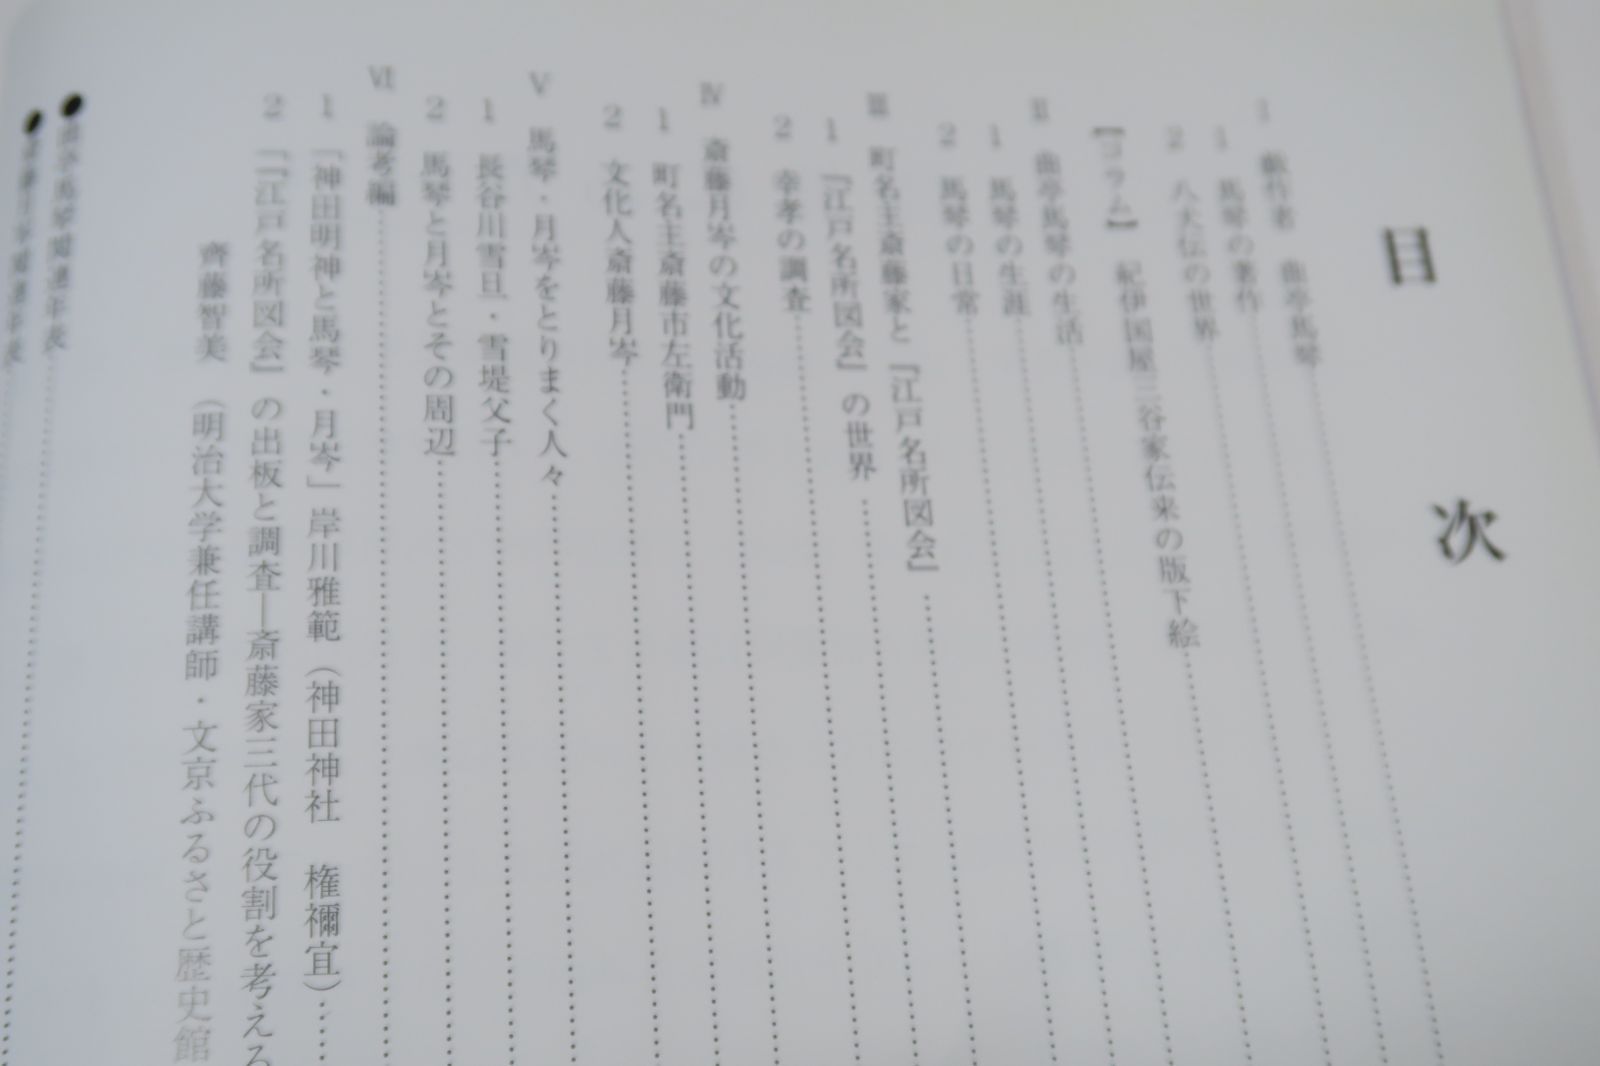 目次
Ⅰ 戯作者 曲亭馬琴
1 馬琴の著作
2 八犬伝の世界
【コラム】 紀伊国屋三谷家伝来の版下絵
Ⅱ 曲亭馬琴の生活
1 馬琴の生涯
2 馬琴の日常
Ⅲ 町名主斎藤家と『江戸名所図会』
1 『江戸名所図会』の世界
2 幸孝の調査
Ⅳ 斎藤月岑の文化活動
1 町名主斎藤市左衛門
2 文化人斎藤月岑
Ⅴ 馬琴・月岑をとりまく人々
1 長谷川雪旦・雪堤父子
2 馬琴と月岑とその周辺
Ⅵ 論考編
1 「神田明神と馬琴・月岑」岸川雅範（神田神社 権禰宜）
2 「『江戸名所図会』の出板と調査―斎藤家三代の役割を考える
齊藤智美 （明治大学兼任講師・文京ふるさと歴史館
●曲亭馬琴関連年表